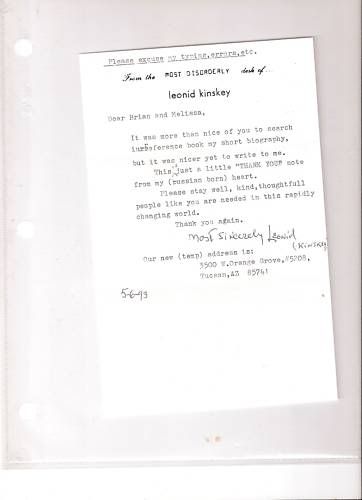 Please excuse my typing,errors,etc.
From the MOST DISORDERLY desk of...
leonid kinskey
Dear Brian and Melissa,
It was more than nice of you to search
in reference book my short biography,
but it was nicer yet to write to me.
This is just a little "THANK YOU" note
from my (russian born) heart.
Please stay well, kind,thoughtfull
people like you are needed in this rapidly
changing world.
Thank you again.
Most Sincerely Leonid
(Kinskey)
Our new (temp) address is:
3500 W.Orange Grove,#5208,
Tucson,AZ 85741
5-6-93